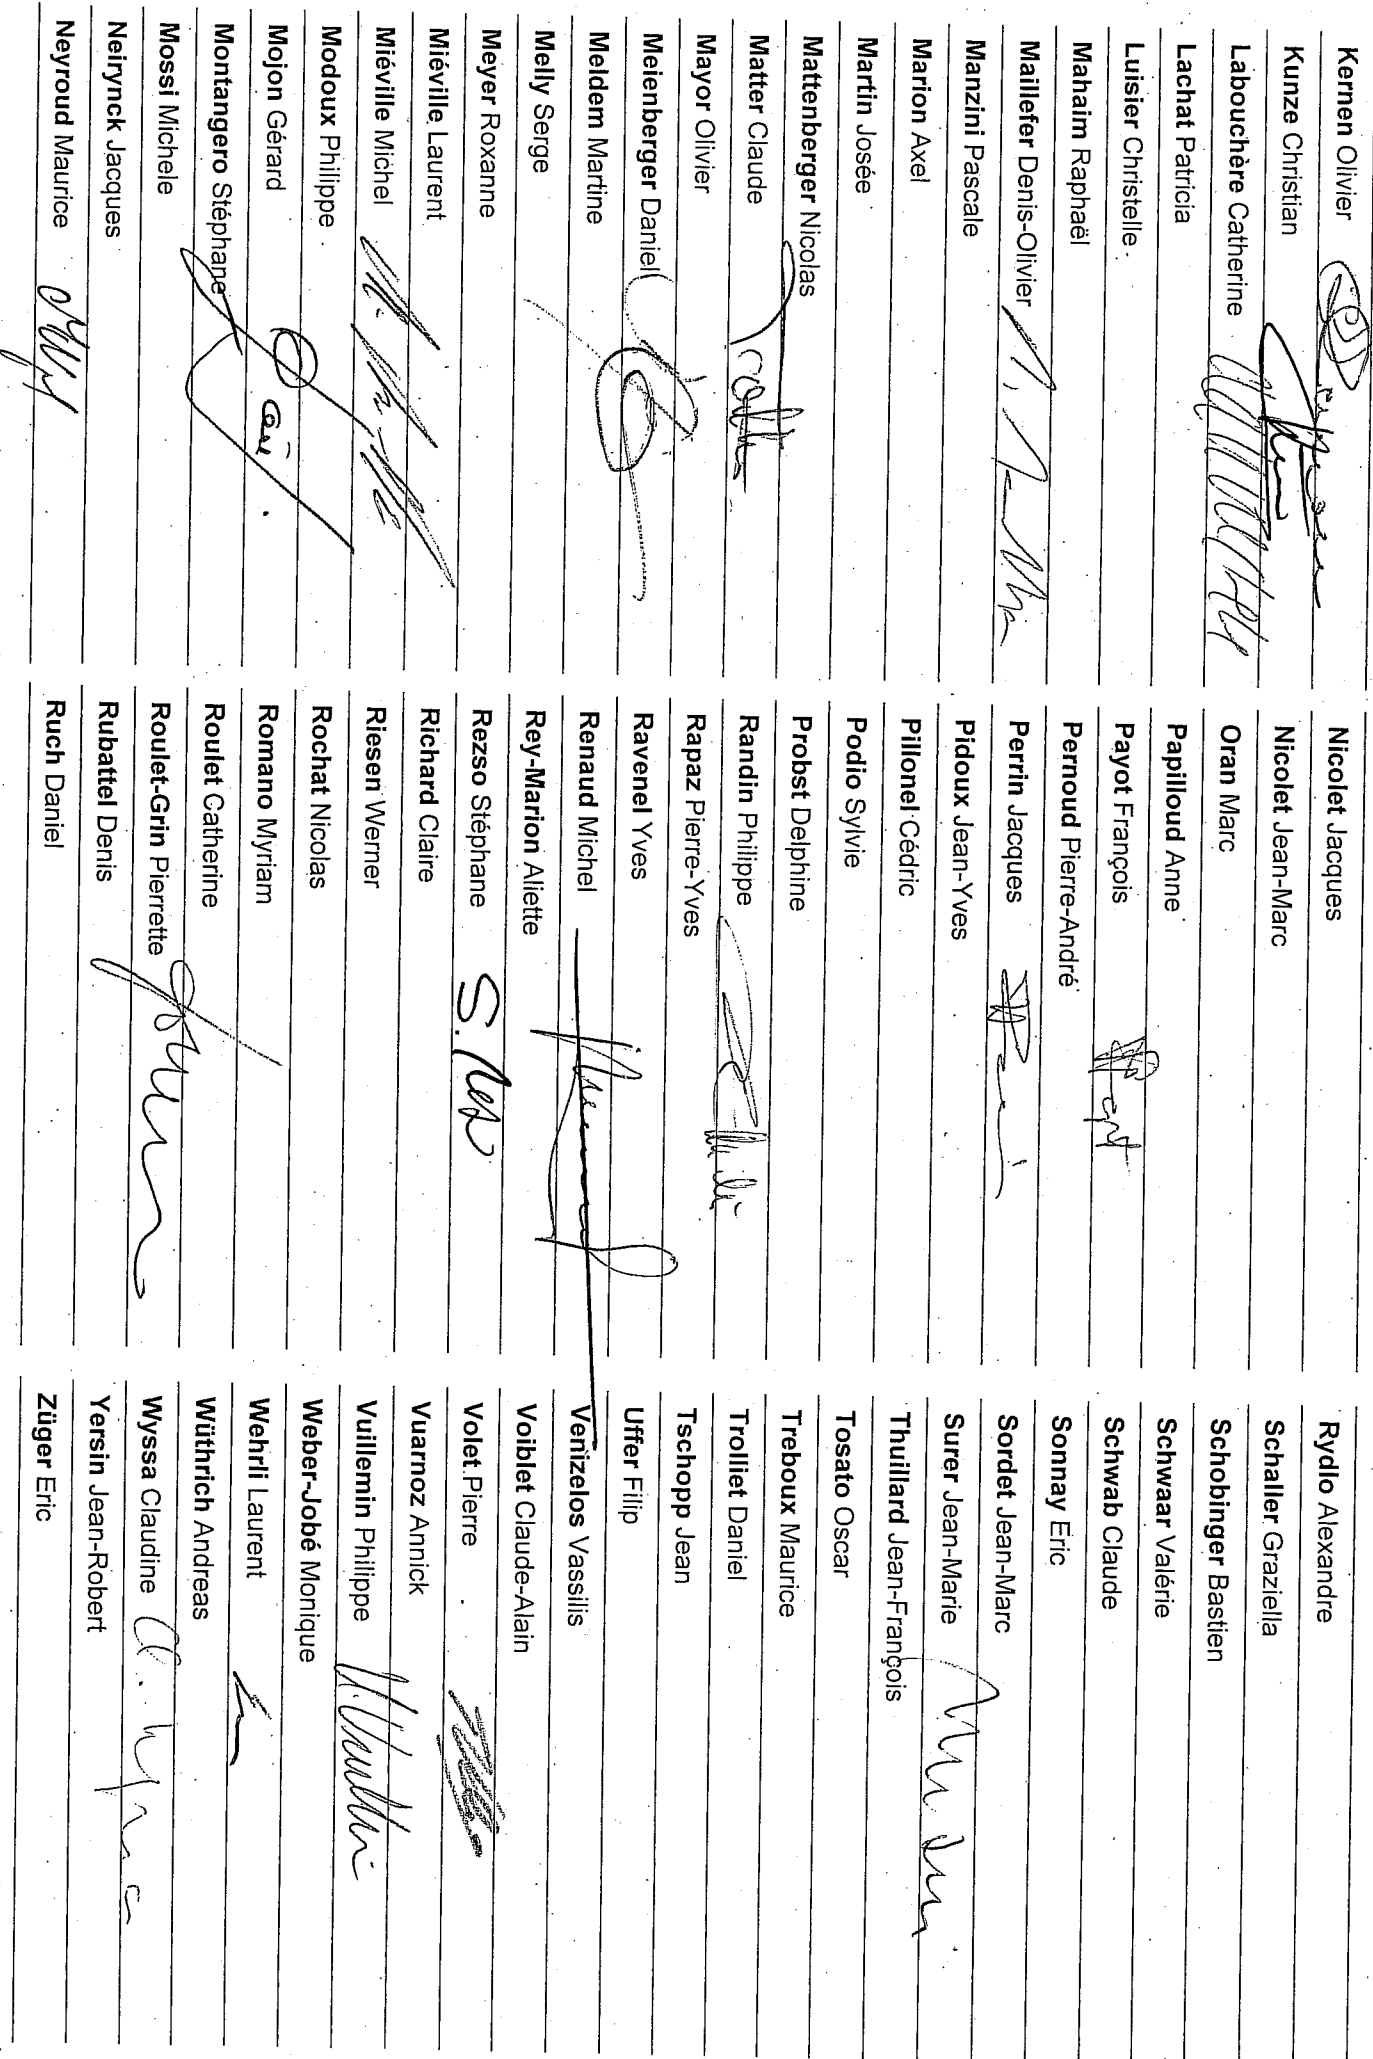 Kernen Olivier
Kunze Christian
Labouchère Catherine
Lachat Patricia
Luisier Christelle
Mahaim Raphaël
Maillefer Denis-Olivier
Manzini Pascale
Marion Axel
Martin Josée
Mattenberger Nicolas
Matter Claude
Mayor Olivier
Meienberger Daniel
Meldem Martine
Melly Serge
Meyer Roxanne
Miéville Laurent
Miéville Michel
Modoux Philippe
Mojon Gérard
Montangero Stéphane
Mossi Michele
Neirynck Jacques
Neyroud Maurice
Nicolet Jacques
Nicolet Jean-Marc
Oran Marc
Papilloud Anne
Payot François
Pernoud Pierre-André
Perrin Jacques
Pidoux Jean-Yves
Pillonel Cédric
Podio Sylvie
Probst Delphine
Randin Philippe
Rapaz Pierre-Yves
Ravenel Yves
Renaud Michel
Rey-Marion Aliette
Rezso Stéphane S. Rez
Richard Claire
Riesen Werner
Rochat Nicolas
Romano Myriam
Roulet Catherine
Roulet-Grin Pierrette
Rubattel Denis
Ruch Daniel
Rydlo Alexandre
Schaller Graziella
Schobinger Bastien
Schwaar Valérie
Schwab Claude
Sonnay Eric
Sordet Jean-Marc
Surer Jean-Marie
Thuillard Jean-François
Tosato Oscar
Treboux Maurice
Trolliet Daniel
Tschopp Jean
Uffer Filip
Venizelos Vassilis
Voiblet Claude-Alain
Volet Pierre
Vuarnoz Annick
Vuillemin Philippe
Weber-Jobé Monique
Wehrli Laurent
Wüthrich Andreas
Wyssa Claudine
Yersin Jean-Robert
Züger Eric